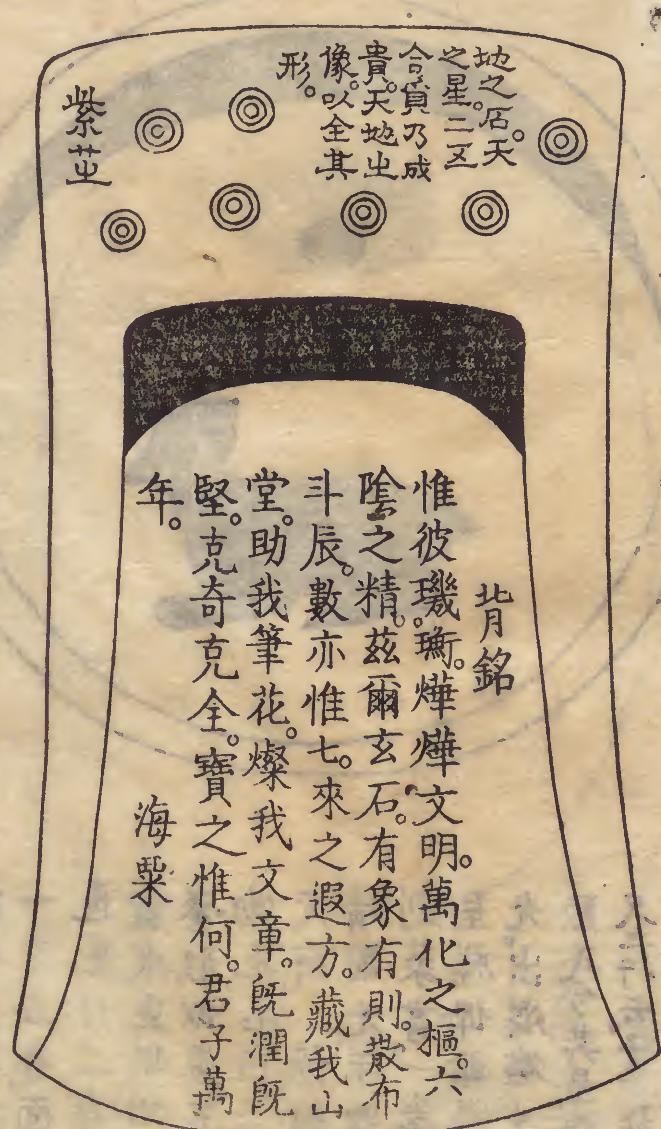 地之石。天
之星。二五
合貞乃成
貴。天地出
像。以全其
形。
紫芝
背銘
惟彼璣衡。燁燁文明。萬化之樞。六
陰之精。茲爾玄石。有象有則。散布
斗辰。數亦惟七。來之遐方。藏我山
堂。助我筆花。燦我文章。旣潤旣
堅。克奇克全。寶之惟何。君子萬
年。
海粟